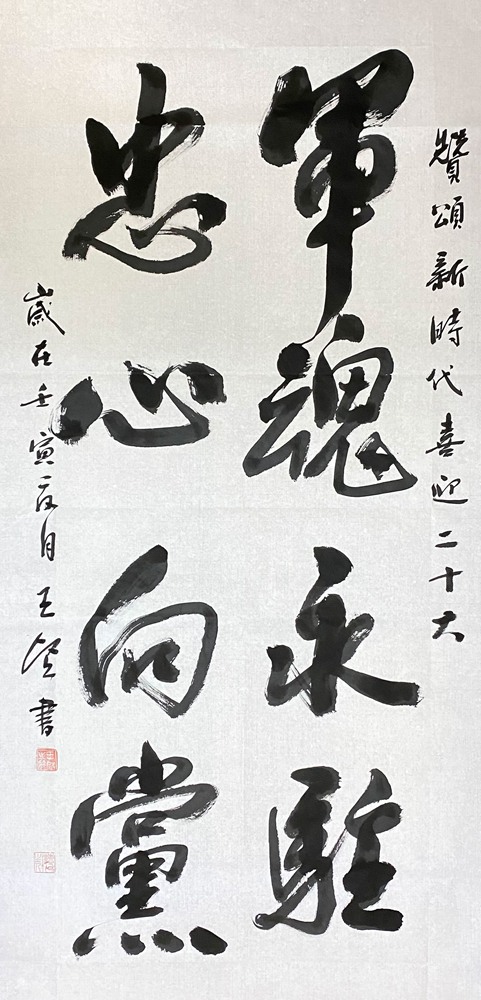 贊頌新時代喜迎二十大
軍魂永駐
忠心向黨
歲在壬寅夏月王書